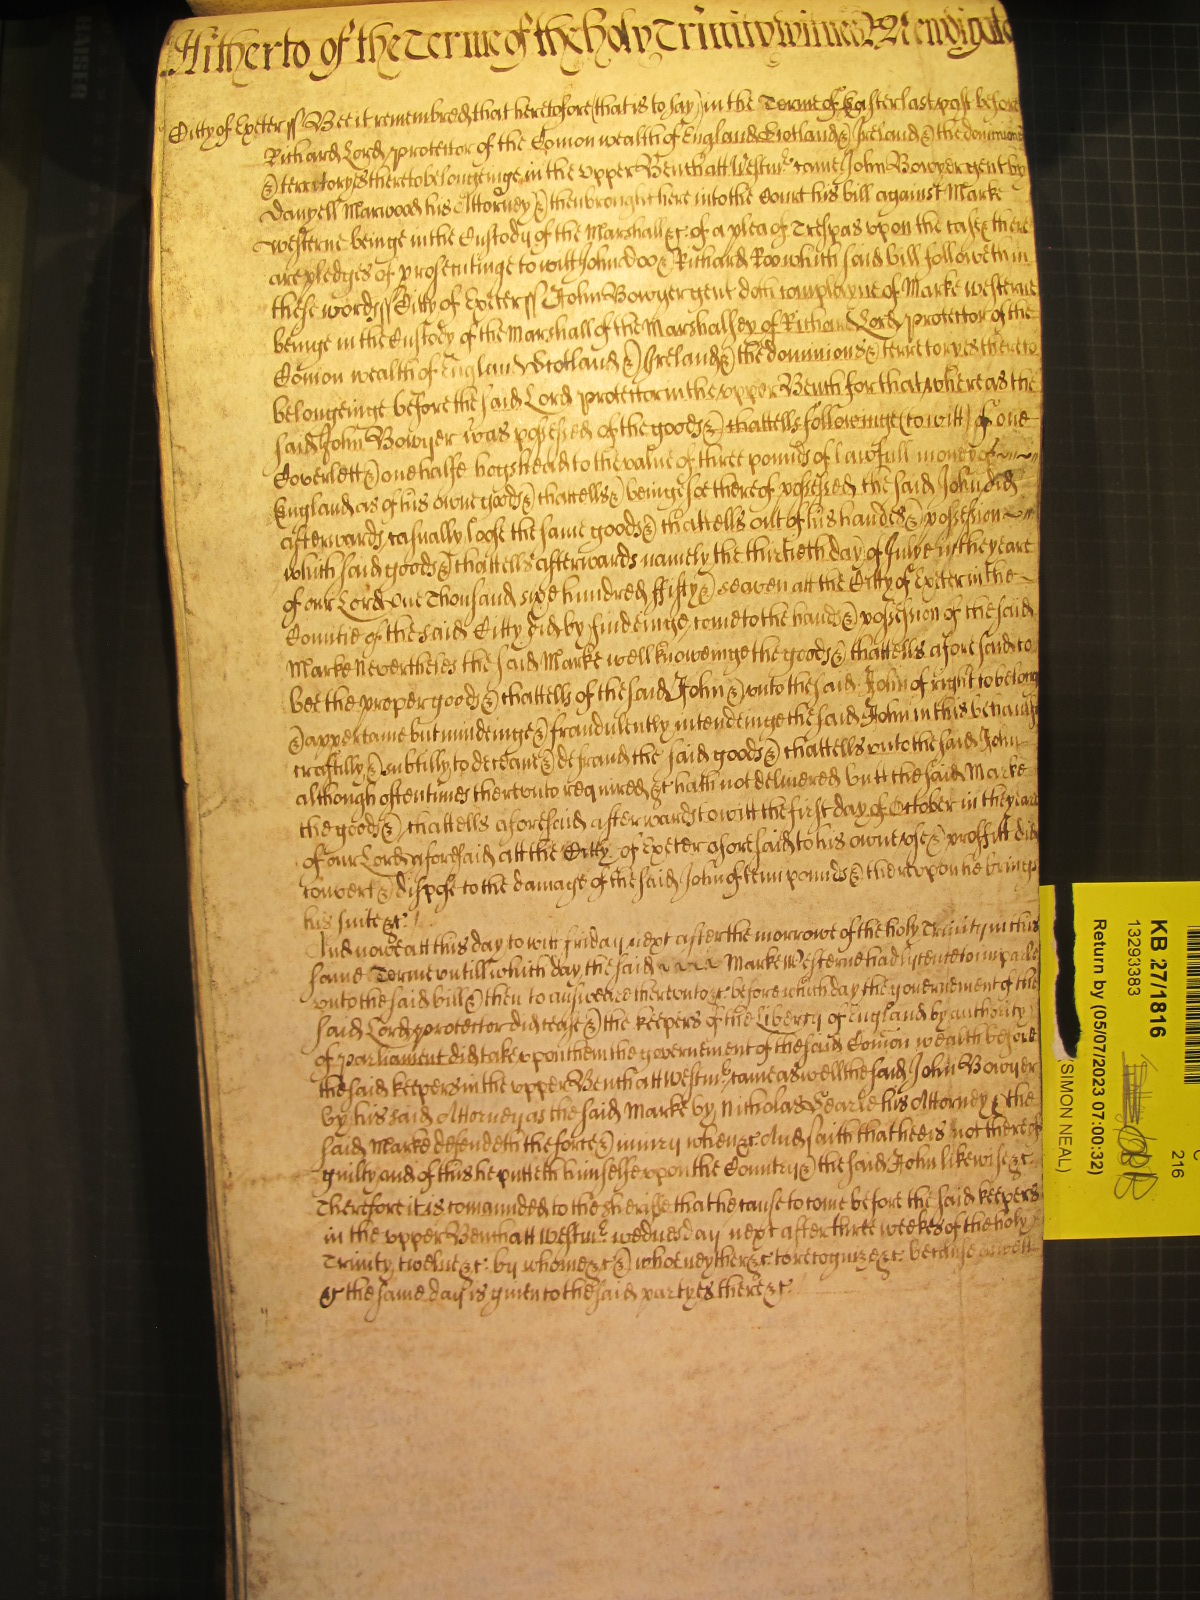 Hitherto of the Terme of the holy Trinity witnes R Newdigate
Citty of Exeter ss Bee it remembred that heretofore (that is to say) in the Terme of Easter last past before
Richard Lord protector of the Comon wealth of England Scotland & Ireland & the dominions
& territoryes thereto belongeinge in the upper Bench att Westmr came John Bowyer gent by
Danyell Marwood his Attorney & then brought here into the Court his bill against Marke
Westerne beinge in the Custody of the Marshall &c of a plea of Trespas upon the case & there
are pledges of prosecutinge to witt John Doo & Richard Roo which said bill followeth in
these words ss Citty of Exeter ss John Bowyer gent doth complayne of Marke Westerne
beinge in the Custody of the Marshall of the Marshalsey of Richard Lord protector of the
Comon wealth of England Scotland & Ireland & the dominions & terretoryes thereto
belongeinge before the said Lord protector in the upper Bench for that whereas the
said John Bowyer was possessed of the goods & chattells followinge (to witt) of one
Coverlett & one halfe hogshead to the value of three pounds of lawfull money of
England as of his owne goods & chattells & beinge soe thereof possessed the said John did
afterwards casually loose the same goods & chattells out of his handes & possession
which said goods & chattells afterwards namely the thirtieth day of Julye in the yeare
of our Lord One Thousand sixe hundred fifty & seaven att the Citty of Exeter in the
Countie of the said Citty did by findeinge come to the hands & possession of the said
Marke Nevertheles the said Marke well knoweinge the goods & chattells aforesaid to
bee the proper goods & chattells of the said John & unto the said John of right to belong
& appertaine but mindeinge & fraudulently intendeinge the said John in this behaulf
craftilly & subtilly to deceave & defraud the said goods & chattells unto the said John
although oftentimes thereunto required &c hath not delivered butt the said Marke
the goods & chattells aforesaid afterwards to witt the first day of October in the yeare
of our Lord aforesaid att the Citty of Exeter aforesaid to his owne use & proffitt did
convert & dispose to the damage of the said John of tenn pounds & thereupon he brings
his suite &c
And nowe att this day to witt friday next after the morrowe of the holy Trinity in this
same Terme untill which day the said Marke Westerne had lycence to imparle
unto the said bill & then to answeare thereunto &c before which day the governement of the
said Lord protector did cease & the keepers of the Liberty of England by authority
of parliament did take upon them the governement of the said Comon wealth before
the said keepers in the upper Bench att Westmr came aswell the said John Bowyer
by his said Attorney as the said Marke by Nicholas Searle his Attorney & the
said Marke defendeth the force & injury when &c And saith that hee is not thereof
guilty and of this he putteth himselfe upon the Country & the said John likewise &c
Therefore it is comaunded to the sheriffe that he cause to come before the said keepers
in the upper Bench att Westmr wednesday next after three weekes of the holy
Trinity twelve &c by whome &c & whoe neyther &c to recognize &c because aswell
&c the same day is given to the said partyes there &c
KB 27/1816
13293383
Return by (05/07/2023 07:00:32)
216
(SIMON NEAL)